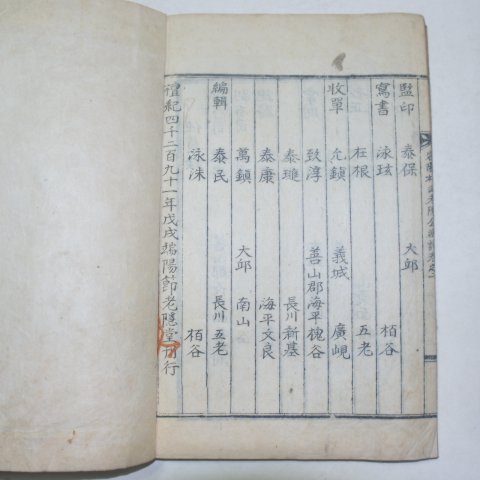 監印 泰保 大邱
寫書 泳玹 栢谷
在根 五老
收單 允鎮 義城 廣峴
致淳 善山郡海平槐谷
泰璉 長川新基
泰康 海平文良
萬鎮 大邱 南山
編輯 泰民 長川五老
泳洙 栢谷
檀紀四千二百九十一年戊戌端陽節老隱堂刊行